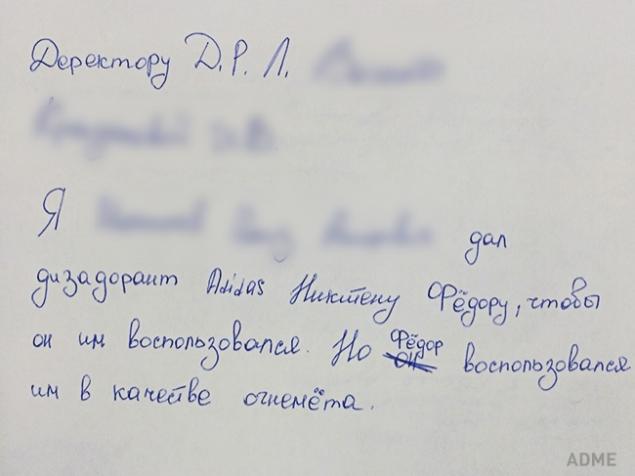 Деректору Д.Р.Л.
Я дал
дизадорант Adidas Никтену Фёдору, чтобы
он им воспользовался. Но Фёдор воспользовался
им в качестве огнемёта.
ADME